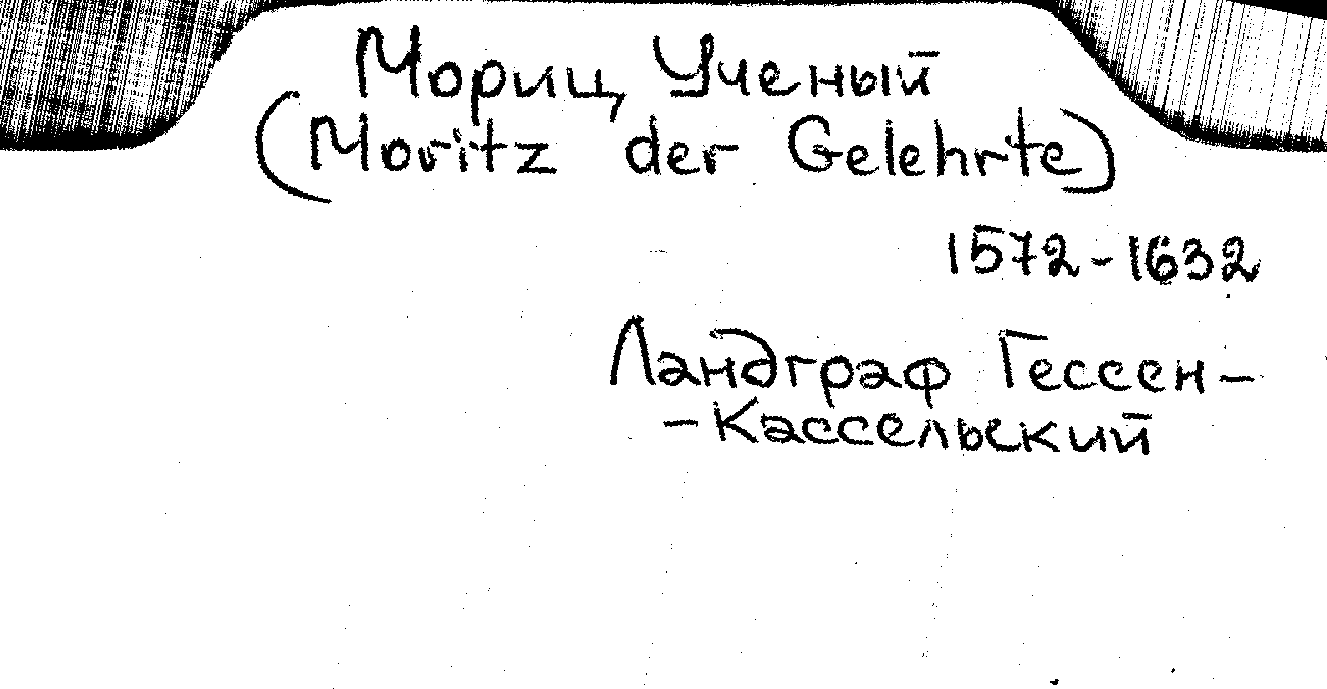 Мориц Ученый
(Moritz der Gelehrte)
1572-1632
Ландграф Гессен-
-Кассельский